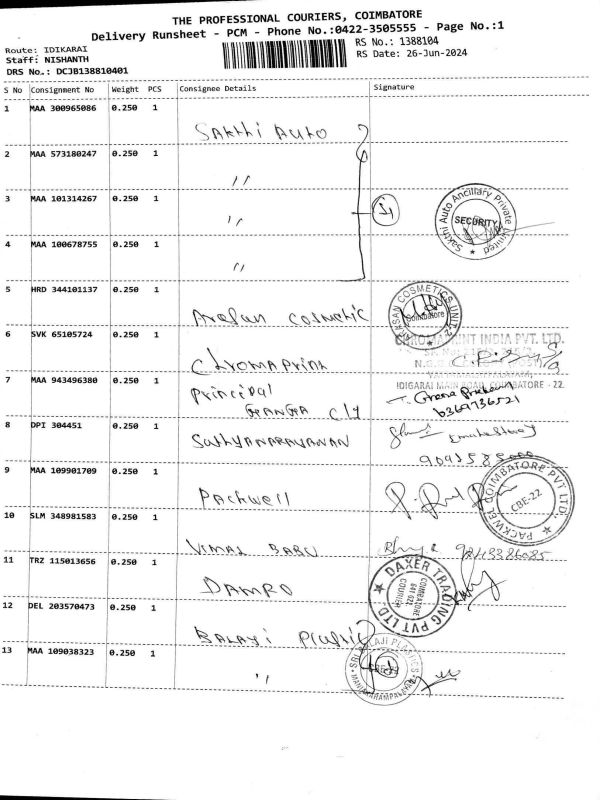 THE PROFESSIONAL COURIERS, COIMBATORE
Delivery Runsheet - PCM - Phone No.:0422-3505555 - Page No.:1
Route: IDIKARAI
RS No.: 1388104
Staff: NISHANTH
RS Date: 26-Jun-2024
DRS No.: DCJB138810401
S No Consignment No Weight PCS Consignee Details Signature
1 MAA 300965086 0.250 1
Sakthi Auto
2 MAA 573180247 0.250 1
"
3 MAA 101314267 0.250 1
"
Sakthi Auto Ancillary Private Limited
SECURITY
4 MAA 100678755 0.250 1
"
5 HRD 344101137 0.250 1
Arasan Cosmetic
ARASAN COSMETICS UNIT-2
Coimbatore
6 SVK 65105724 0.250 1
Chromaprint
CHROMAPRINT INDIA PVT. LTD.
7 MAA 943496380 1 0.250
Principal
Ganga Clg
IDIGARAI MAIN ROAD, COIMBATORE - 22.
8 DPI 304451 0.250 1
Sathyanarayanan
9 MAA 109901709 0.250 1
Packwell
PACKWEL COIMBATORE PVT LTD.,
CBE-22
10 SLM 348981583 0.250 1
Vimal Babu
11 TRZ 115013656 0.250 1
Damro
DAXER TRADING PVT LTD
COIMBATORE
COURIER
12 DEL 203570473 0.250 1
Balaji Plastic
13 MAA 109038323 0.250 1
"
SRI BALAJI PLASTICS